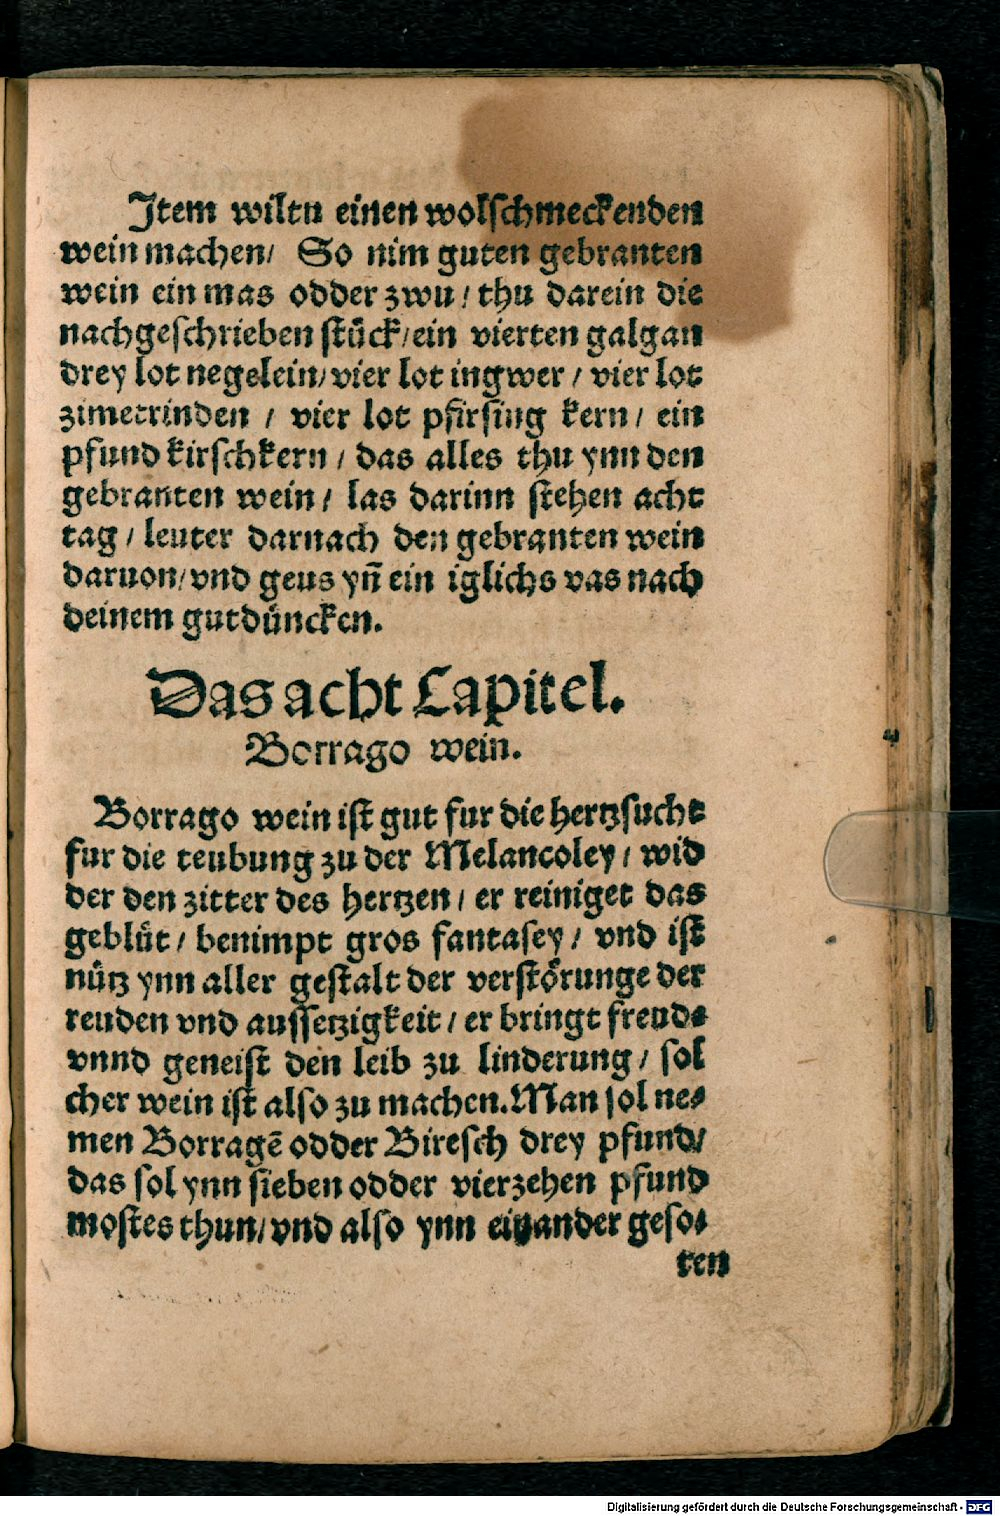 Item wiltu einen wolschmeckenden
wein machen/ So nim guten gebranten
wein ein mas odder zwu/ thu darein die
nachgeschrieben stuͤck/ein vierten galgan
drey lot negelein/vier lot ingwer/ vier lot
zimetrinden / vier lot pfirsing kern/ ein
pfund kirschkern/ das alles thu ynn den
gebranten wein/ las darinn stehen acht
tag/ leuter darnach den gebranten wein
daruon/vnd geus yn̄ ein iglichs vas nach
deinem gutduͤncken.
Das acht Capitel.
Borrago wein.
Borrago wein ist gut fur die hertzsucht
fur die teubung zu der Melancoley/ wid
der den zitter des hertzen/ er reiniget das
gebluͤt/ benimpt gros fantasey/ vnd ist
nuͤtz ynn aller gestalt der verstoͤrunge der
reuden vnd aussetzigkeit/ er bringt freud⸗
vnnd geneist den leib zu linderung/ sol
cher wein ist also zu machen. Man sol ne⸗
men Borragē odder Biresch drey pfund/
das sol ynn sieben odder vierzehen pfund
mostes thun/vnd also ynn einander geso⸗
ten
Digitalisierung gefördert durch die Deutsche Forschungsgemeinschaft - DFG